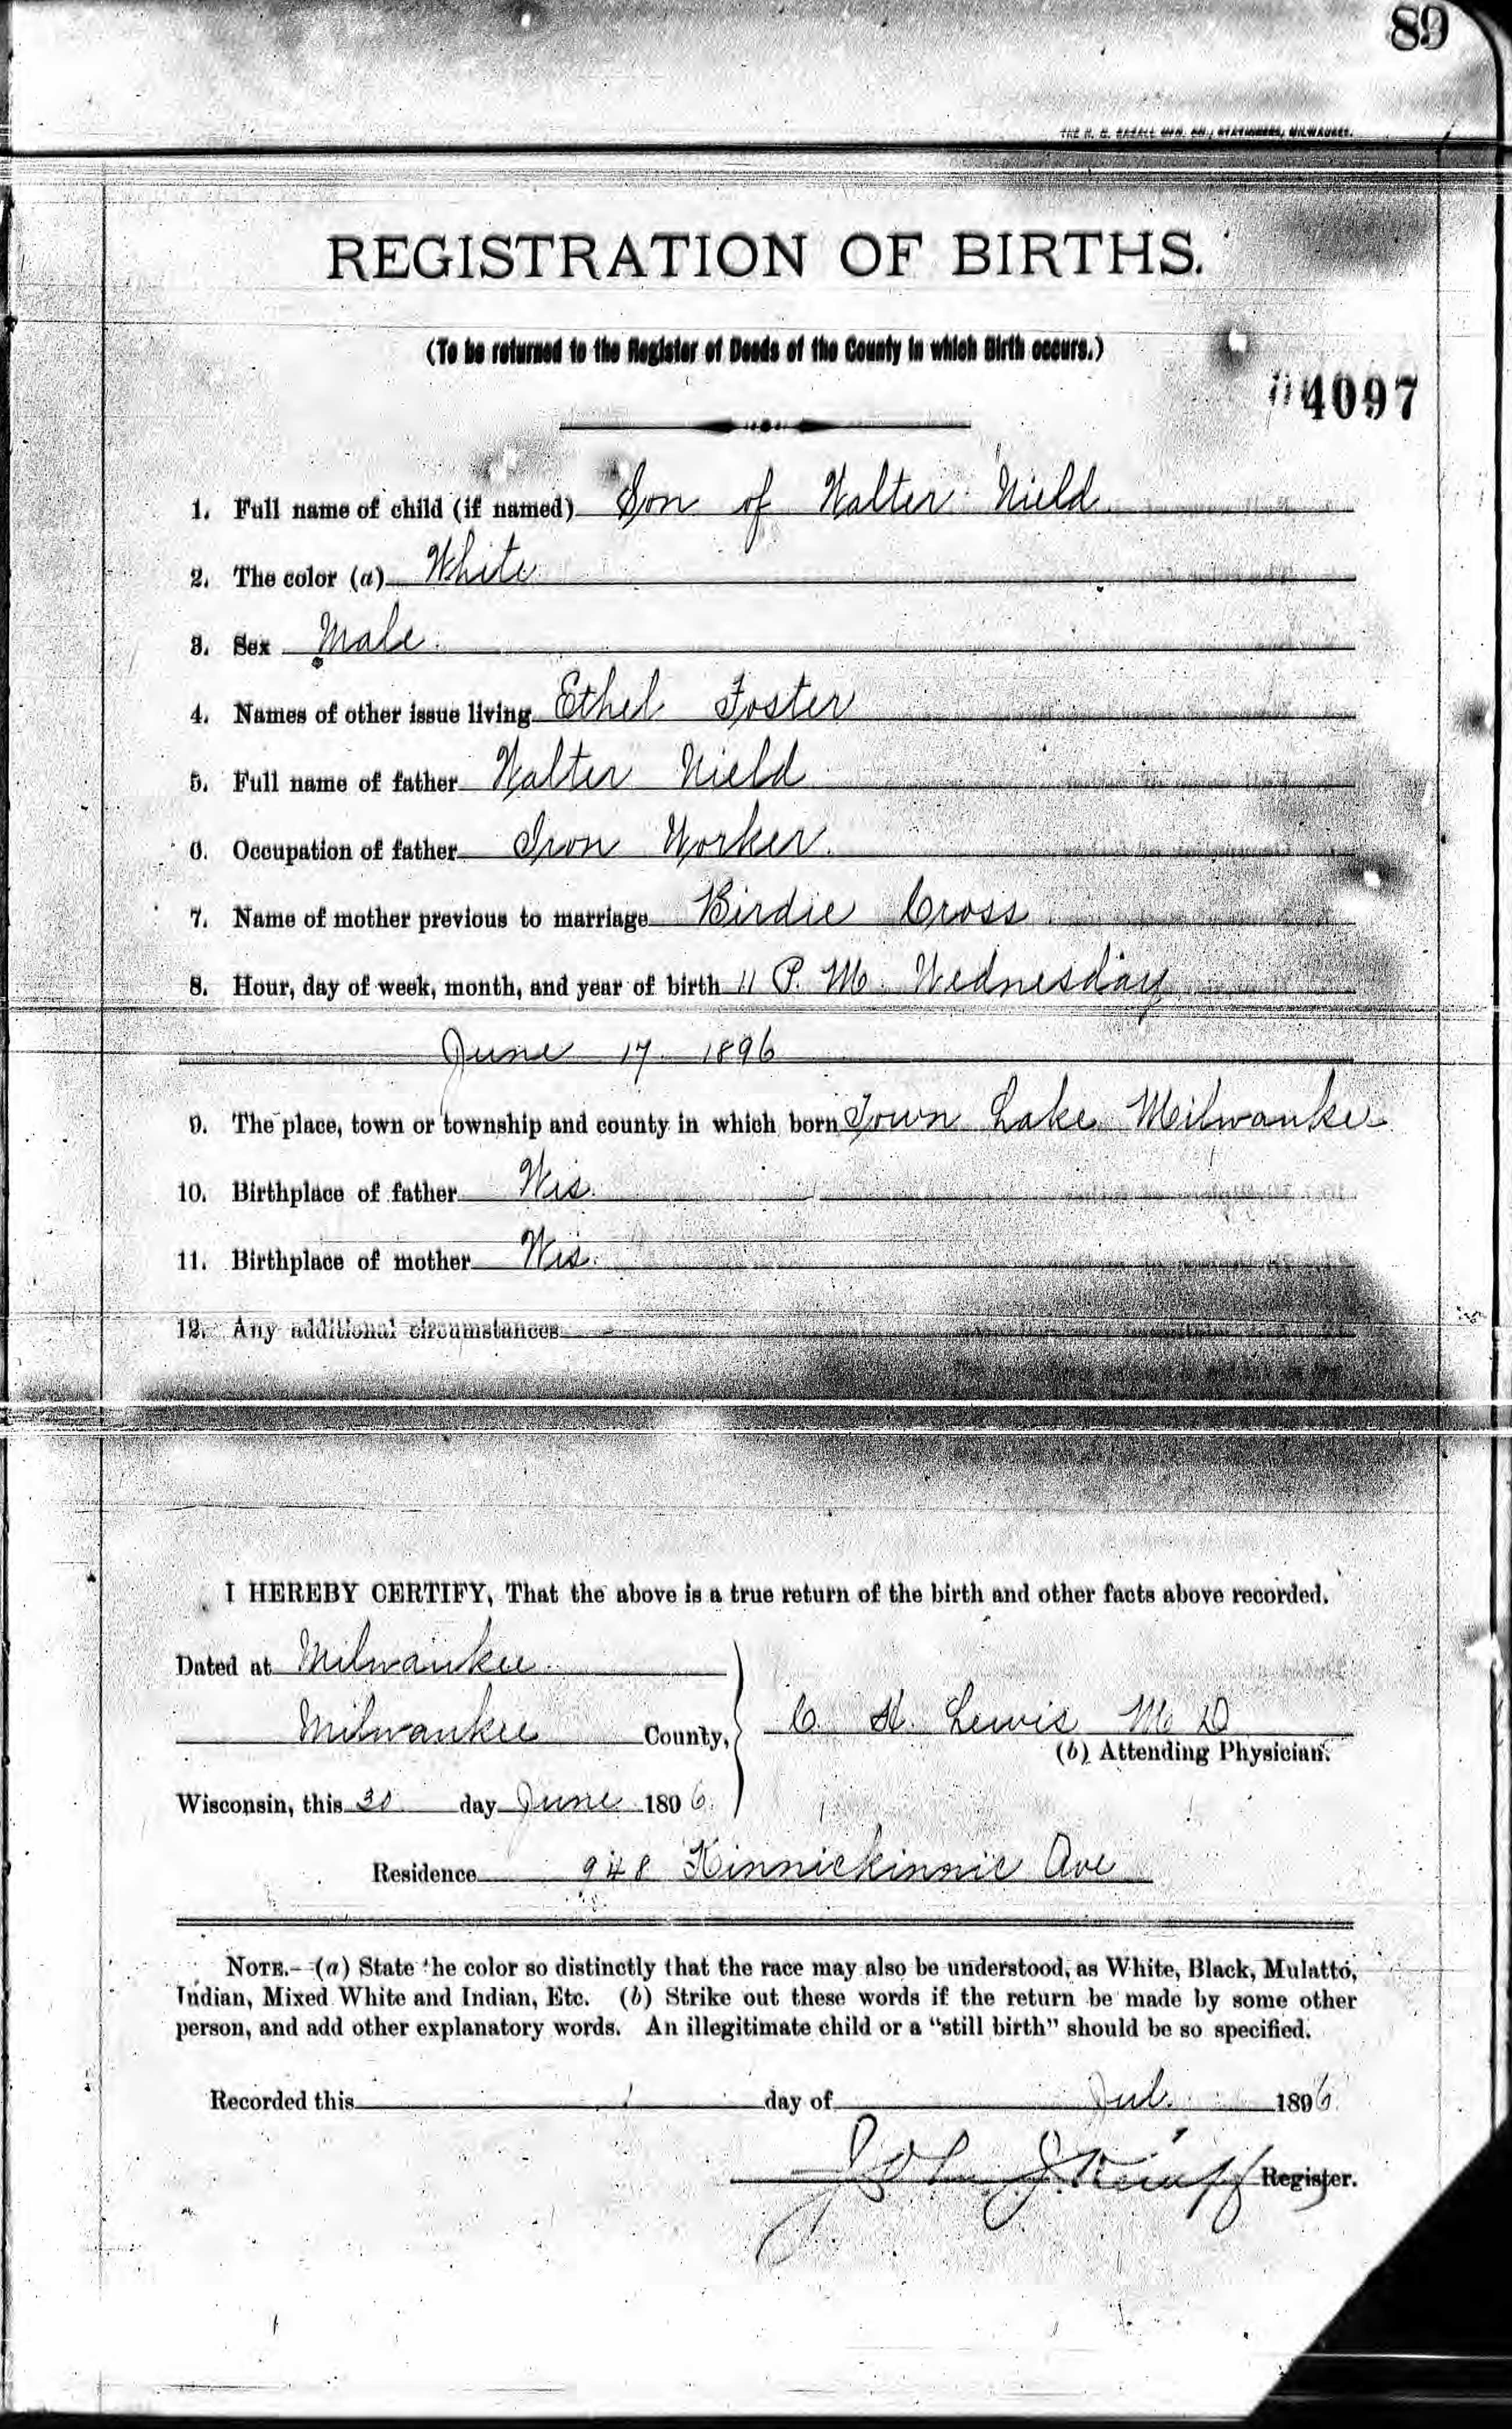 89
REGISTRATION OF BIRTHS.
(To be returned to the Register of Deeds of the County in which Birth occurs.)
4097
1. Full name of child (if named) Son of Walter Nield
2. The color (a) White
3. Sex Male
4. Names of other issue living Ethel Foster
5. Full name of father Walter Nield
6. Occupation of father Iron Worker
7. Name of mother previous to marriage Birdie Cross
8. Hour, day of week, month, and year of birth 11 P. M. Wednesday
June 17 1896
9. The place, town or township and county in which born Town Lake Milwaukee
10. Birthplace of father Wis.
11. Birthplace of mother Wis.
12. Any additional circumstances
I HEREBY CERTIFY, That the above is a true return of the birth and other facts above recorded.
Dated at Milwaukee
Milwaukee County,
C. H. Lewis M D
(b) Attending Physician.
Wisconsin, this 30 day June 1896.
Residence 948 Kinnickinnic Ave
NOTE.—(a) State the color so distinctly that the race may also be understood, as White, Black, Mulatto,
Indian, Mixed White and Indian, Etc. (b) Strike out these words if the return be made by some other
person, and add other explanatory words. An illegitimate child or a "still birth" should be so specified.
Recorded this 1 day of Jul. 1896
John Register.